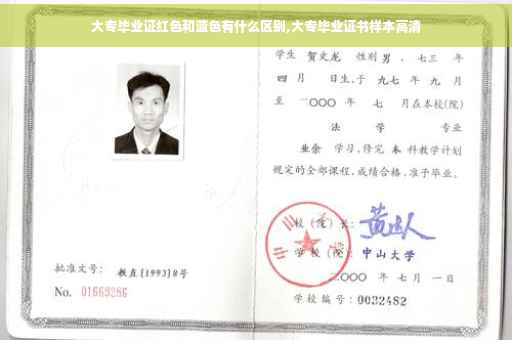 大专毕业证红色和蓝色有什么区别,大专毕业证书样本高清
学生 贺文龙 性别 男 、七三 年
四 月 日生,于 九七 年 九 月
至 二〇〇〇 年 七 月在本校(院)
法 学 专业
业余 学习,修完 本 科教学计划
规定的全部课程,成绩合格,准予毕业。
校(院)长:
学 校(院): 中山大学
二〇〇〇 年 七 月 一 日
批准文号: 教直[1993]8号
No. 01669286
学校编号: 0032482